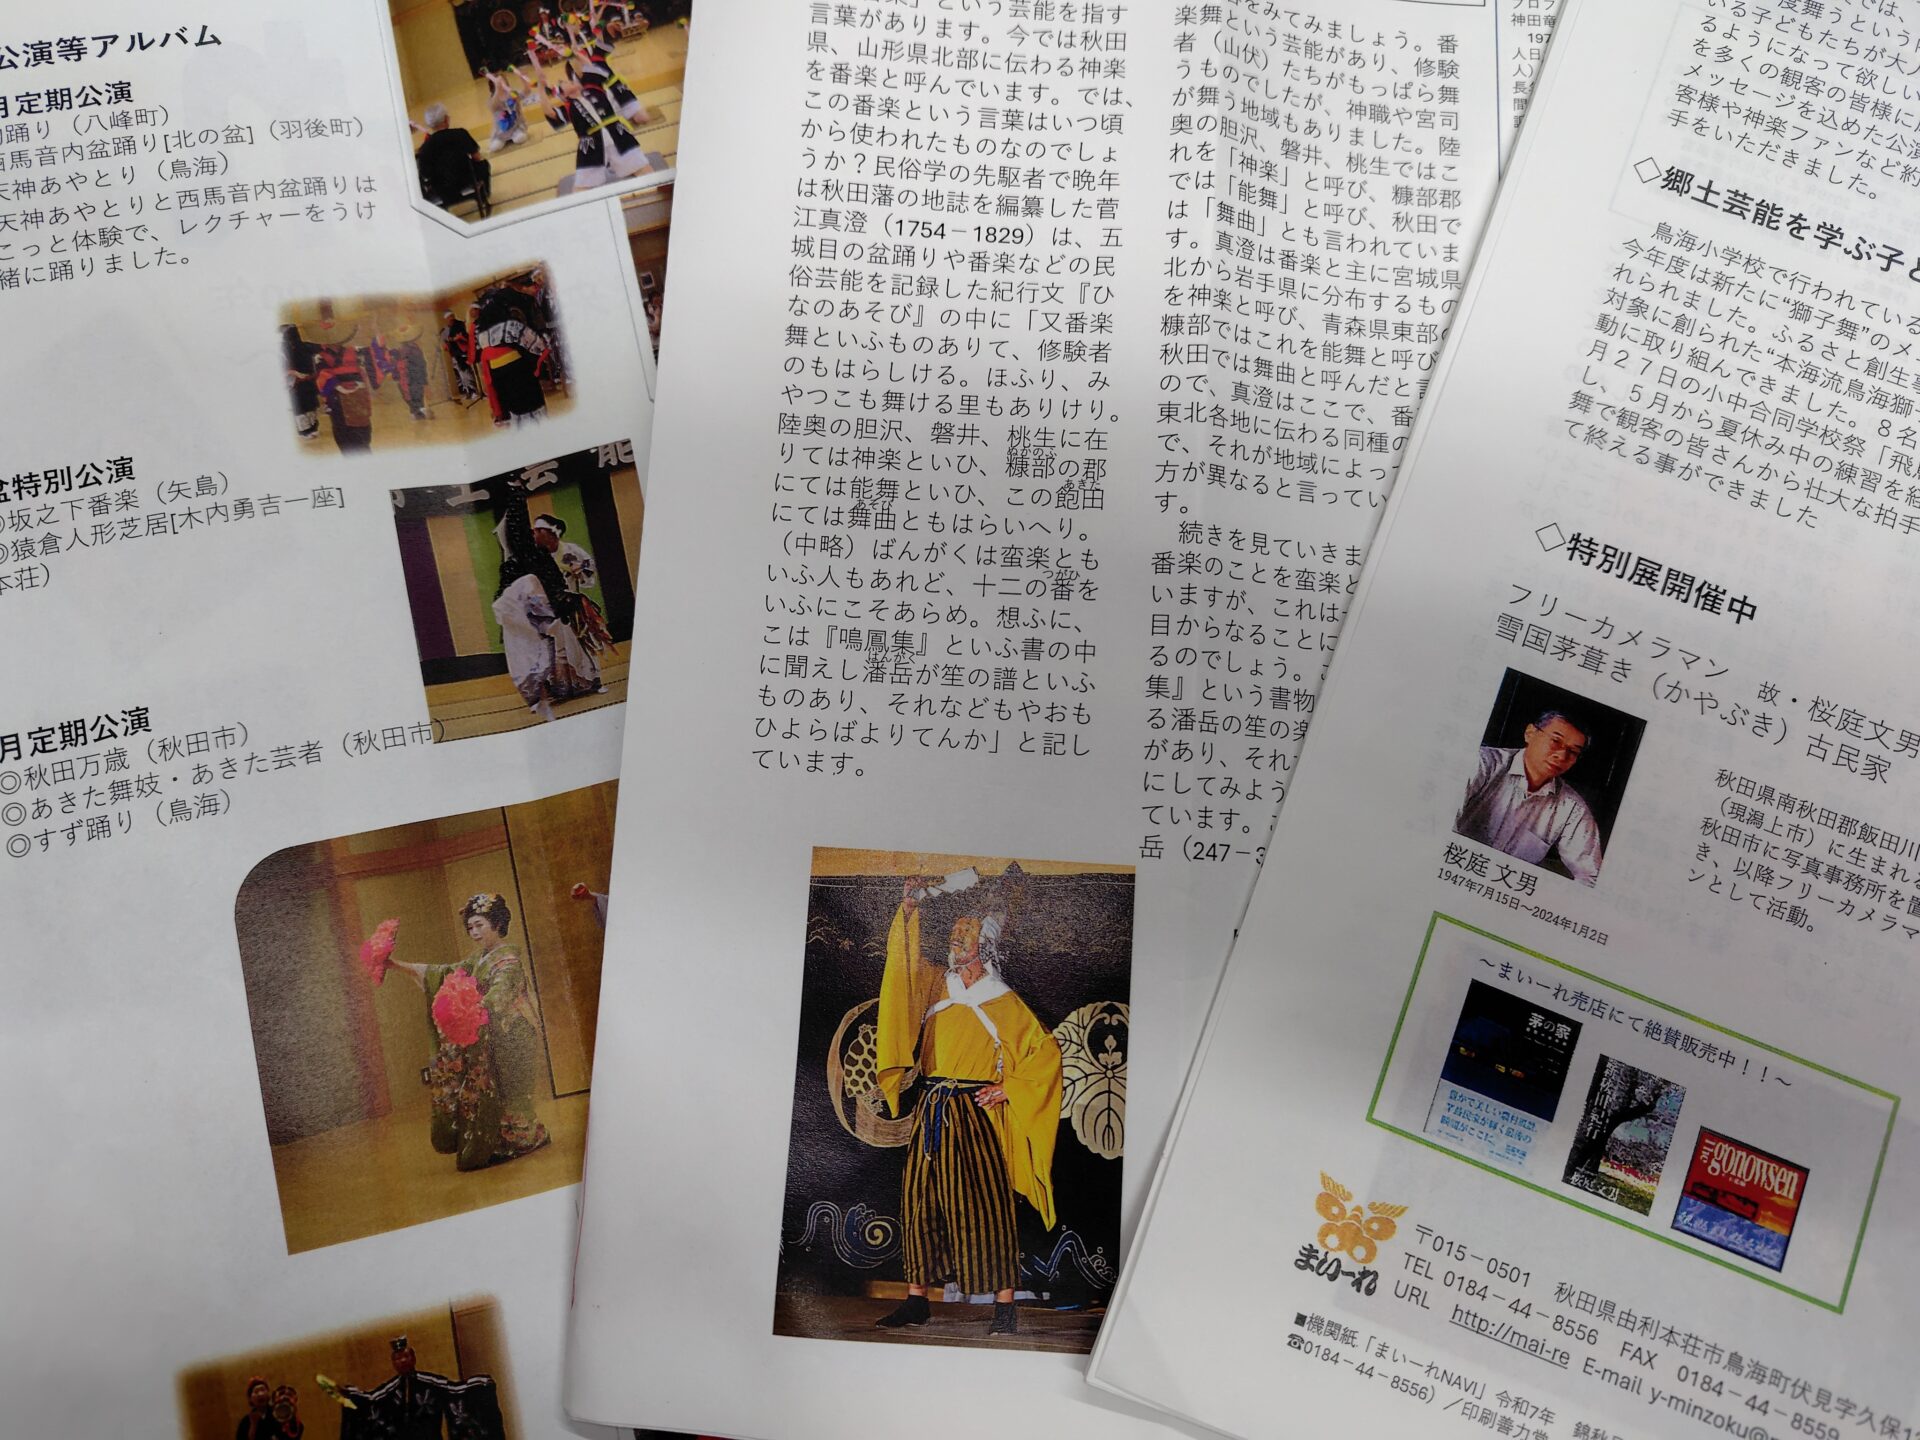 公演等アルバム
月定期公演
踊り（八峰町）
西馬音内盆踊り[北の盆]（羽後町）
天神あやとり（鳥海）
天神あやとりと西馬音内盆踊りは
こっと体験で、レクチャーをうけ
緒に踊りました。
盆特別公演
◎坂之下番楽（矢島）
◎猿倉人形芝居[木内勇吉一座]
本荘）
月定期公演
◎秋田万歳（秋田市）
◎あきた舞妓・あきた芸者（秋田市）
◎すず踊り（鳥海）
」という芸能を指す
言葉があります。今では秋田
県、山形県北部に伝わる神楽
を番楽と呼んでいます。では、
この番楽という言葉はいつ頃
から使われたものなのでしょ
うか？民俗学の先駆者で晩年
は秋田藩の地誌を編纂した菅
江真澄（1754－1829）は、五
城目の盆踊りや番楽などの民
俗芸能を記録した紀行文『ひ
なのあそび』の中に「又番楽
舞といふものありて、修験者
のもはらしける。ほふり、み
やつこも舞ける里もありけり。
陸奥の胆沢、磐井、桃生に在
りては神楽といひ、糠部の郡
にては能舞といひ、この飽田
にては舞曲ともはらいへり。
（中略）ばんがくは蛮楽とも
いふ人もあれど、十二の番を
いふにこそあらめ。想ふに、
こは『鳴鳳集』といふ書の中
に聞えし潘岳が笙の譜といふ
ものあり、それなどもやおも
ひよらばよりてんか」と記し
ています。
をみてみましょう。番
楽舞という芸能があり、修験
者（山伏）たちがもっぱら舞
うものでしたが、神職や宮司
が舞う地域もありました。陸
奥の胆沢、磐井、桃生ではこ
れを「神楽」と呼び、糠部郡
では「能舞」と呼び、秋田で
は「舞曲」とも言われていま
す。真澄は番楽と主に宮城県
北から岩手県に分布するもの
を神楽と呼び、青森県東部の
糠部ではこれを能舞と呼び
秋田では舞曲と呼んだと言
ので、真澄はここで、番
東北各地に伝わる同種の
で、それが地域によっ
方が異なると言ってい
す。
続きを見ていきま
番楽のことを蛮楽と
いますが、これは
目からなることに
るのでしょう。
集』という書物
る潘岳の笙の楽
があり、それ
にしてみよう
ています。
岳（247－3
神田竜
197
人日
人）
度舞うという
いる子どもたちが大人
るようになって欲しい
を多くの観客の皆様に
メッセージを込めた公演
客様や神楽ファンなど約
手をいただきました。
◇郷土芸能を学ぶ子ど
鳥海小学校で行われている
今年度は新たに“獅子舞”のメ
れられました。ふるさと創生事
対象に創られた“本海流鳥海獅
動に取り組んできました。８名
月２７日の小中合同学校祭「飛鳥
し、５月から夏休み中の練習を経
舞で観客の皆さんから壮大な拍手
て終える事ができました
◇特別展開催中
フリーカメラマン　故・桜庭文男
雪国茅葺き（かやぶき）古民家
桜庭 文男
1947年7月15日～2024年1月2日
秋田県南秋田郡飯田川
（現潟上市）に生まれる
秋田市に写真事務所を置
き、以降フリーカメラマ
ンとして活動。
～まいーれ売店にて絶賛販売中！！～
茅の家
gonowsen
まいーれ
〒015－0501　秋田県由利本荘市鳥海町伏見字久保
TEL 0184－44－8556　FAX　0184－44－8559
URL　http://mai-re　E-mail y-minzoku@
■機関紙「まいーれNAVI」令和7年
☎0184－44－8556）／印刷善力堂